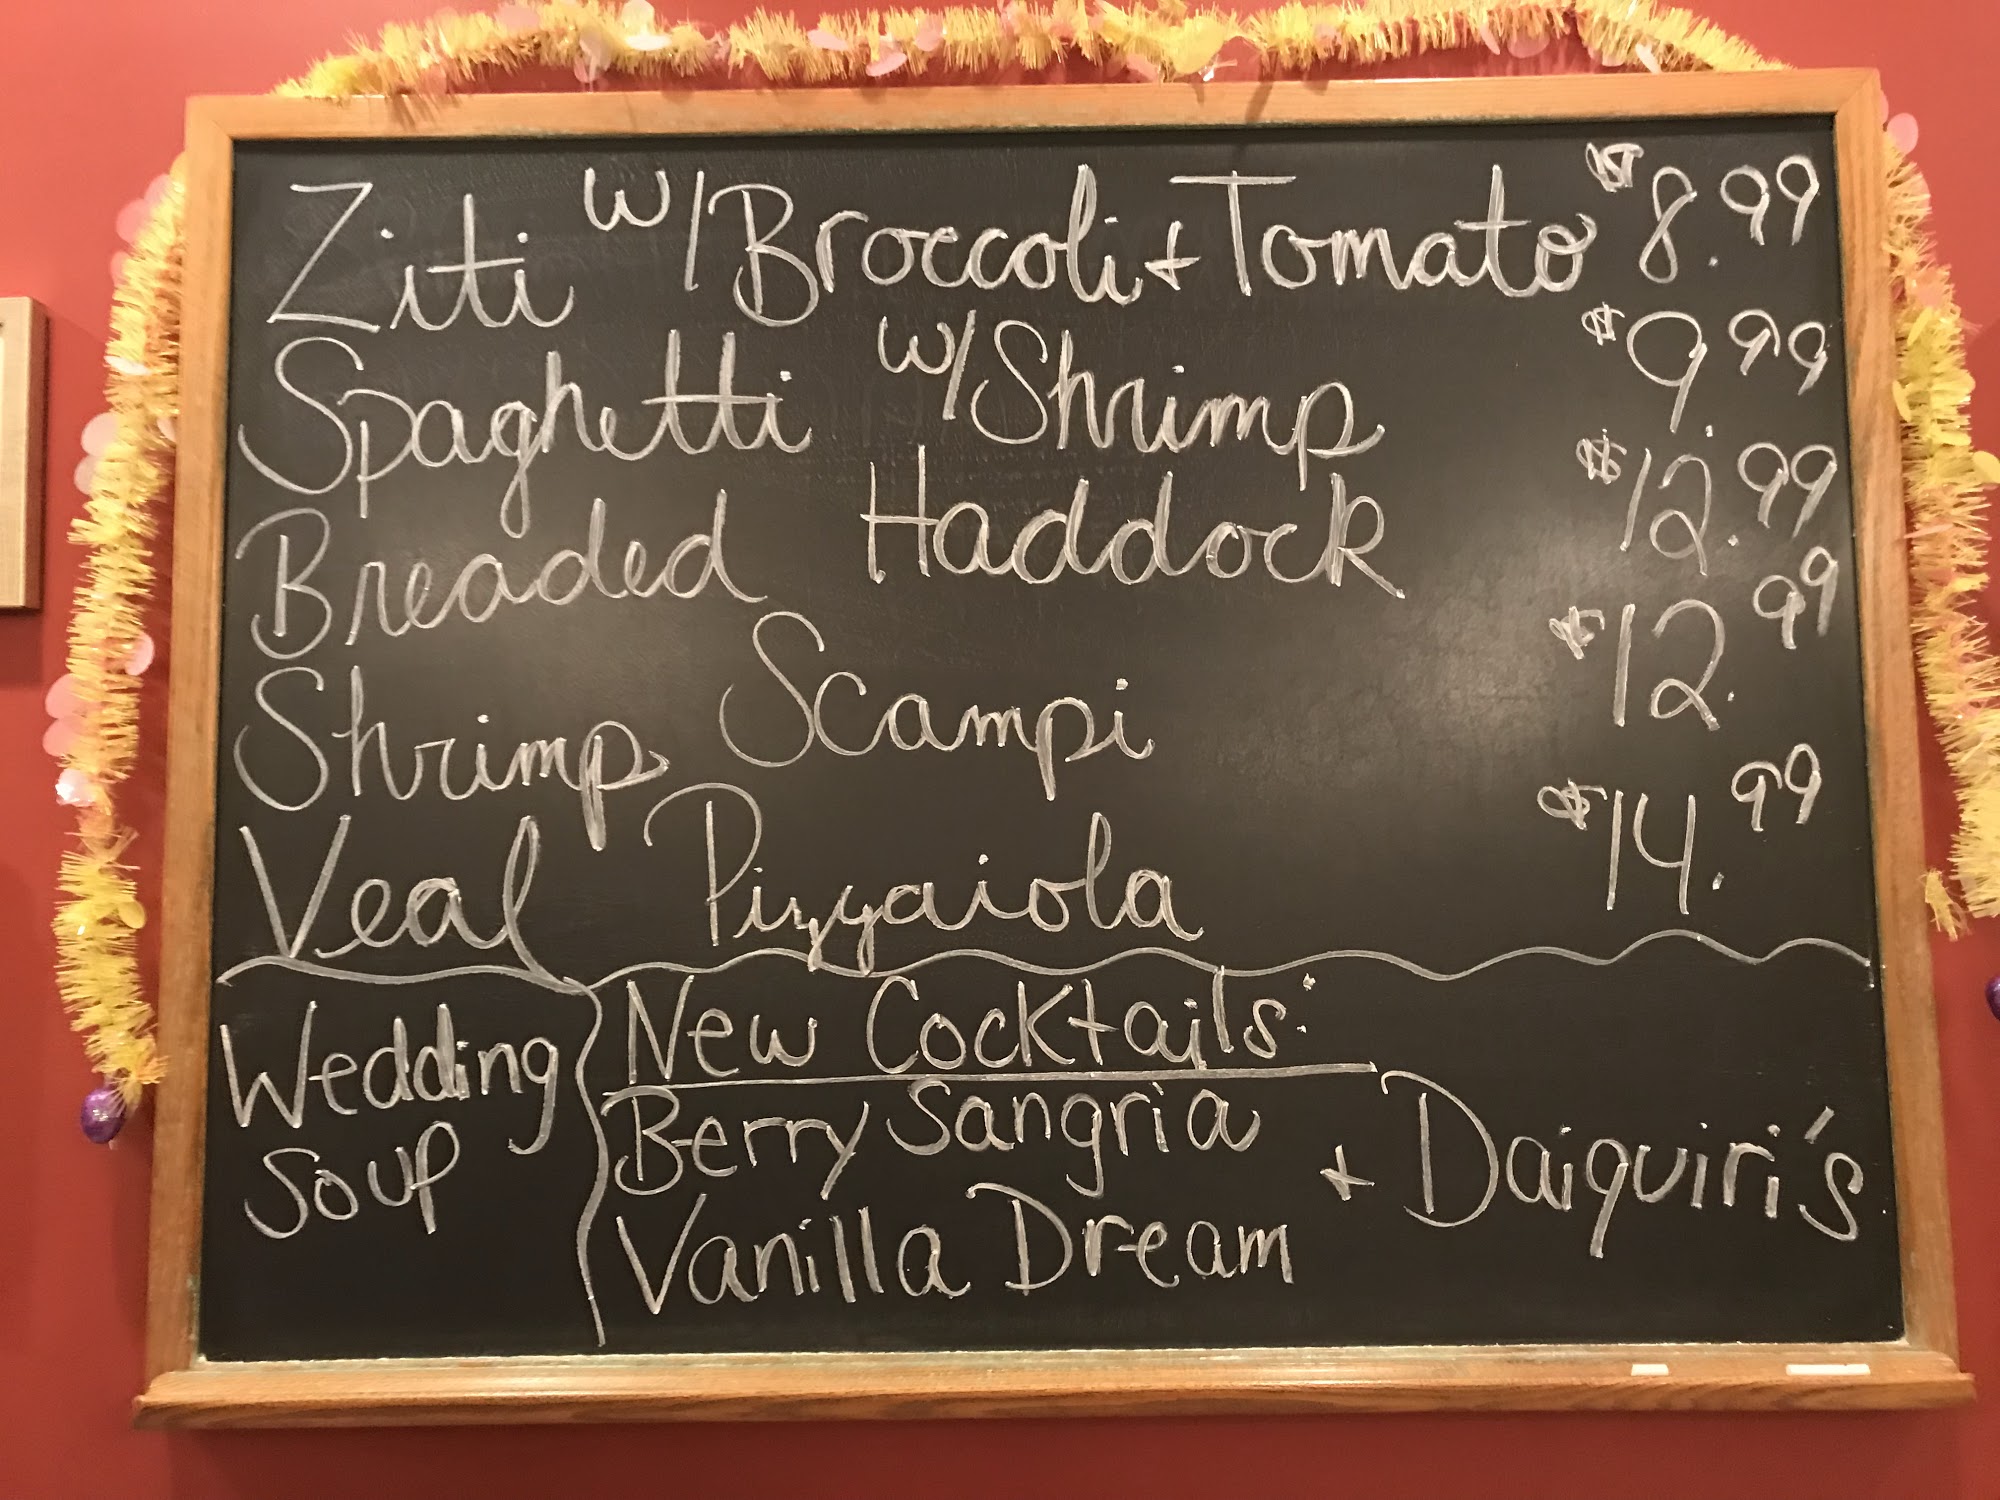 Ziti w/ Broccoli + Tomato $8.99
Spaghetti w/ Shrimp $9.99
Breaded Haddock $12.99
Shrimp Scampi $12.99
Veal Pizzaiola $14.99
Wedding
Soup
New Cocktails:
Berry Sangria
Vanilla Dream
+ Daiquiri's